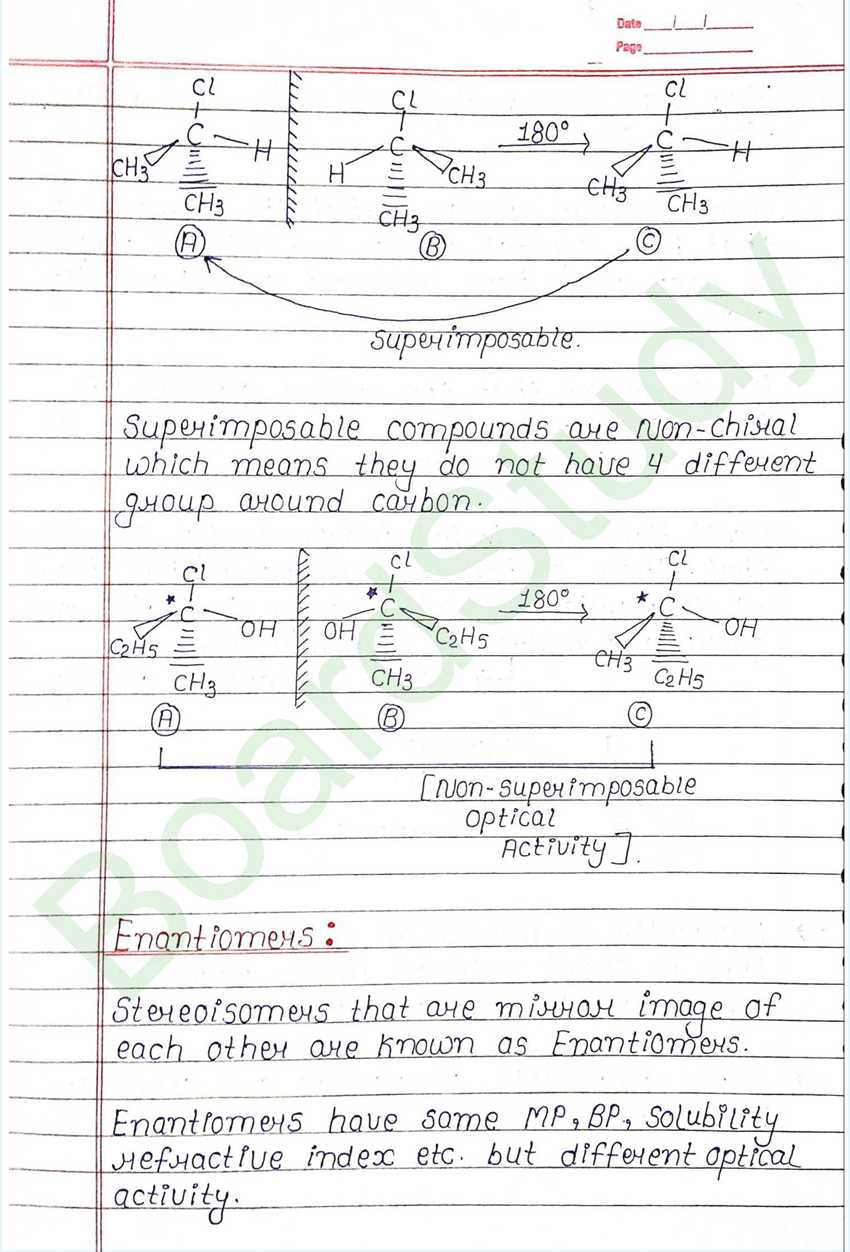 Date / /
Page
Cl
C
CH3
H
CH3
A
Cl
C
H
CH3
CH3
B
180°
Cl
C
CH3
H
CH3
C
Superimposable.
Superimposable compounds are Non-chiral
which means they do not have 4 different
group around carbon.
Cl
* C
C2H5
OH
CH3
A
Cl
* C
OH
C2H5
CH3
B
180°
Cl
* C
CH3
OH
C2H5
C
[Non-superimposable
Optical
Activity].
Enantiomers:
Stereoisomers that are mirror image of
each other are known as Enantiomers.
Enantiomers have same MP, BP, Solubility
refractive index etc. but different optical
activity.
BoardStudy